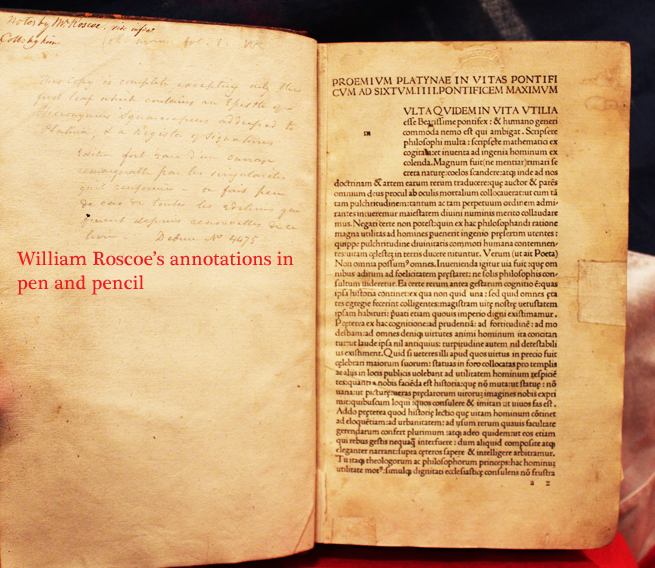 Notes by Mr Roscoe. vix
Coll: by him
This Copy is complete excepting only the
first leaf which contains an Epistle of
Hieronymus Squarzaficus addressed to
Platina, & a Register of Signatures
Edition fort rare d'un ouvrage
remarquable par les singularités
qu'il renferme
de cas de toutes les editions qui
furent depuis renouvellées de ce
livre. Debure No 4475
William Roscoe's annotations in
pen and pencil
PROEMIVM PLATYNAE IN VITAS PONTIFI
CVM AD SIXTVM.IIII.PONTIFICEM MAXIMVM
VLTA QVIDEM IN VITA VTILIA
esse Beatissime pontifex: & humano generi
commoda nemo est qui ambigat. Scripsere
philosophi multa: scripsere mathematici ex
cogitata: et inuenta ad ingenia hominum ex
colenda. Magnum fuit (ne mentiar) rimari se
creta naturae: coelos scandere: atq; inde ad nos
doctrinam & artem earum rerum traducere: quę auctor & parēs
omnium deus procul ab oculis mortalium collocauerat: ut cum tā
tam pulchritudinem: tantum ac tam perpetuum ordinem admi
rantes intueremur maiestatem diuini numinis merito collaudare
mus. Negari certe non potest: quin ex hac philosophandi ratione
magna utilitas ad homines peruenerit ingenio pręsertim utentes:
quippe pulchritudine diuinitatis commoti humana contemnen
tes: uitam cęlestem in terris ducere nituntur. Verum (ut ait Poeta)
Non omnia possumus omnes. Inuenienda igitur uia fuit: quę om
nibus aditum ad foelicitatem pręstaret: ne solis philosophis con
sultum uideretur. Ea certe rerum antea gestarum cognitio ē: quas
ipsa historia continet: ex qua non quid una: sed quid omnes ęta
tes egregie fecerint colligentes: magistram uitę nostrę uetustatem
ipsam habituri: p̄uati etiam quouis imperio digni existimamur.
Pręterea ex hac cognitione: ad prudentiā: ad fortitudinē: ad mo
destiam: ad omnes deniq; uirtutes animi hominum ita concitan
tur: ut laude ipsa nil antiquius: turpitudine autem nil detestabili
us existiment. Quid si ueteres illi apud quos uirtus in precio fuit
celebrari maiorum suorum: statuas in foro collocatas pro templis
ac aliis in locis publicis uolebant ad utilitatem hominum respiciē
tes: quanti a nobis faciēda est historia: quę nō muta: ut statuę: nō
uana: ut picturę: ueras pręclarorum uirorum imagines nobis expri
mit: quibuscum loqui: quos consulere & imitari ut uiuos fas est.
Addo pręterea quod historię lectio quę uitam hominum cōtinet
ad eloquētiam: ad urbanitatem: ad usum rerum quauis facultate
gerendarum confert plurimum: atq; adeo quidem: ut eos etiam
qui rebus gestis nequaq̄ interfuere: dum aliquid composite atq;
eleganter narrant: supra cęteros sapere & intelligere arbitramur.
Tu itaq; theologorum ac philosophorum princeps: hac hominum
utilitate motus: simulq; dignitati ecclesiasticę consulens nō frustra
a 2